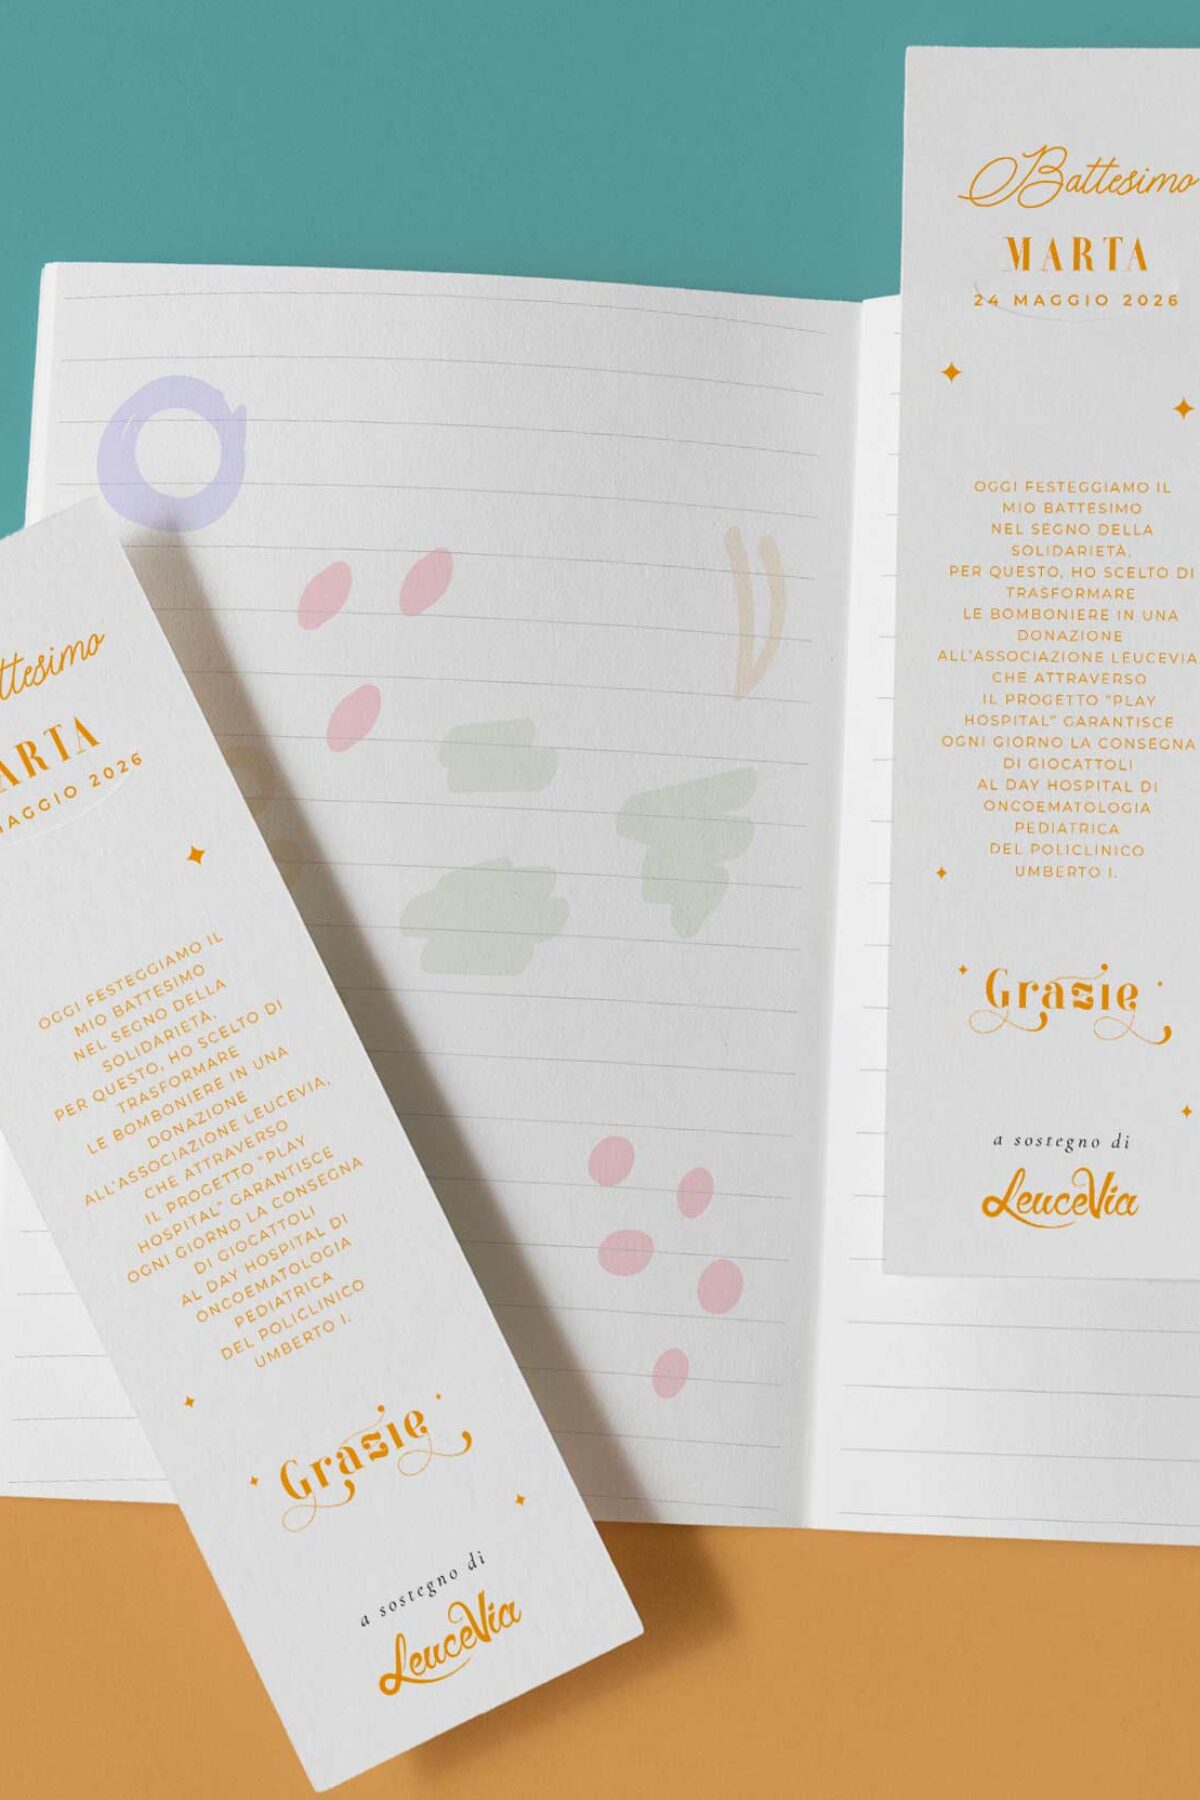 Battesimo
MARTA
24 MAGGIO 2026
OGGI FESTEGGIAMO IL
MIO BATTESIMO
NEL SEGNO DELLA
SOLIDARIETÀ.
PER QUESTO, HO SCELTO DI
TRASFORMARE
LE BOMBONIERE IN UNA
DONAZIONE
ALL'ASSOCIAZIONE LEUCEVIA
CHE ATTRAVERSO
IL PROGETTO "PLAY
HOSPITAL" GARANTISCE
OGNI GIORNO LA CONSEGNA
DI GIOCATTOLI
AL DAY HOSPITAL DI
ONCOEMATOLOGIA
PEDIATRICA
DEL POLICLINICO
UMBERTO I.
Grazie
a sostegno di
LeuceVia
ttesimo
ARTA
MAGGIO 2026
OGGI FESTEGGIAMO IL
MIO BATTESIMO
NEL SEGNO DELLA
SOLIDARIETÀ.
PER QUESTO, HO SCELTO DI
TRASFORMARE
LE BOMBONIERE IN UNA
DONAZIONE
ALL'ASSOCIAZIONE LEUCEVIA,
CHE ATTRAVERSO
IL PROGETTO "PLAY
HOSPITAL" GARANTISCE
OGNI GIORNO LA CONSEGNA
DI GIOCATTOLI
AL DAY HOSPITAL DI
ONCOEMATOLOGIA
PEDIATRICA
DEL POLICLINICO
UMBERTO I.
Grazie
a sostegno di
LeuceVia